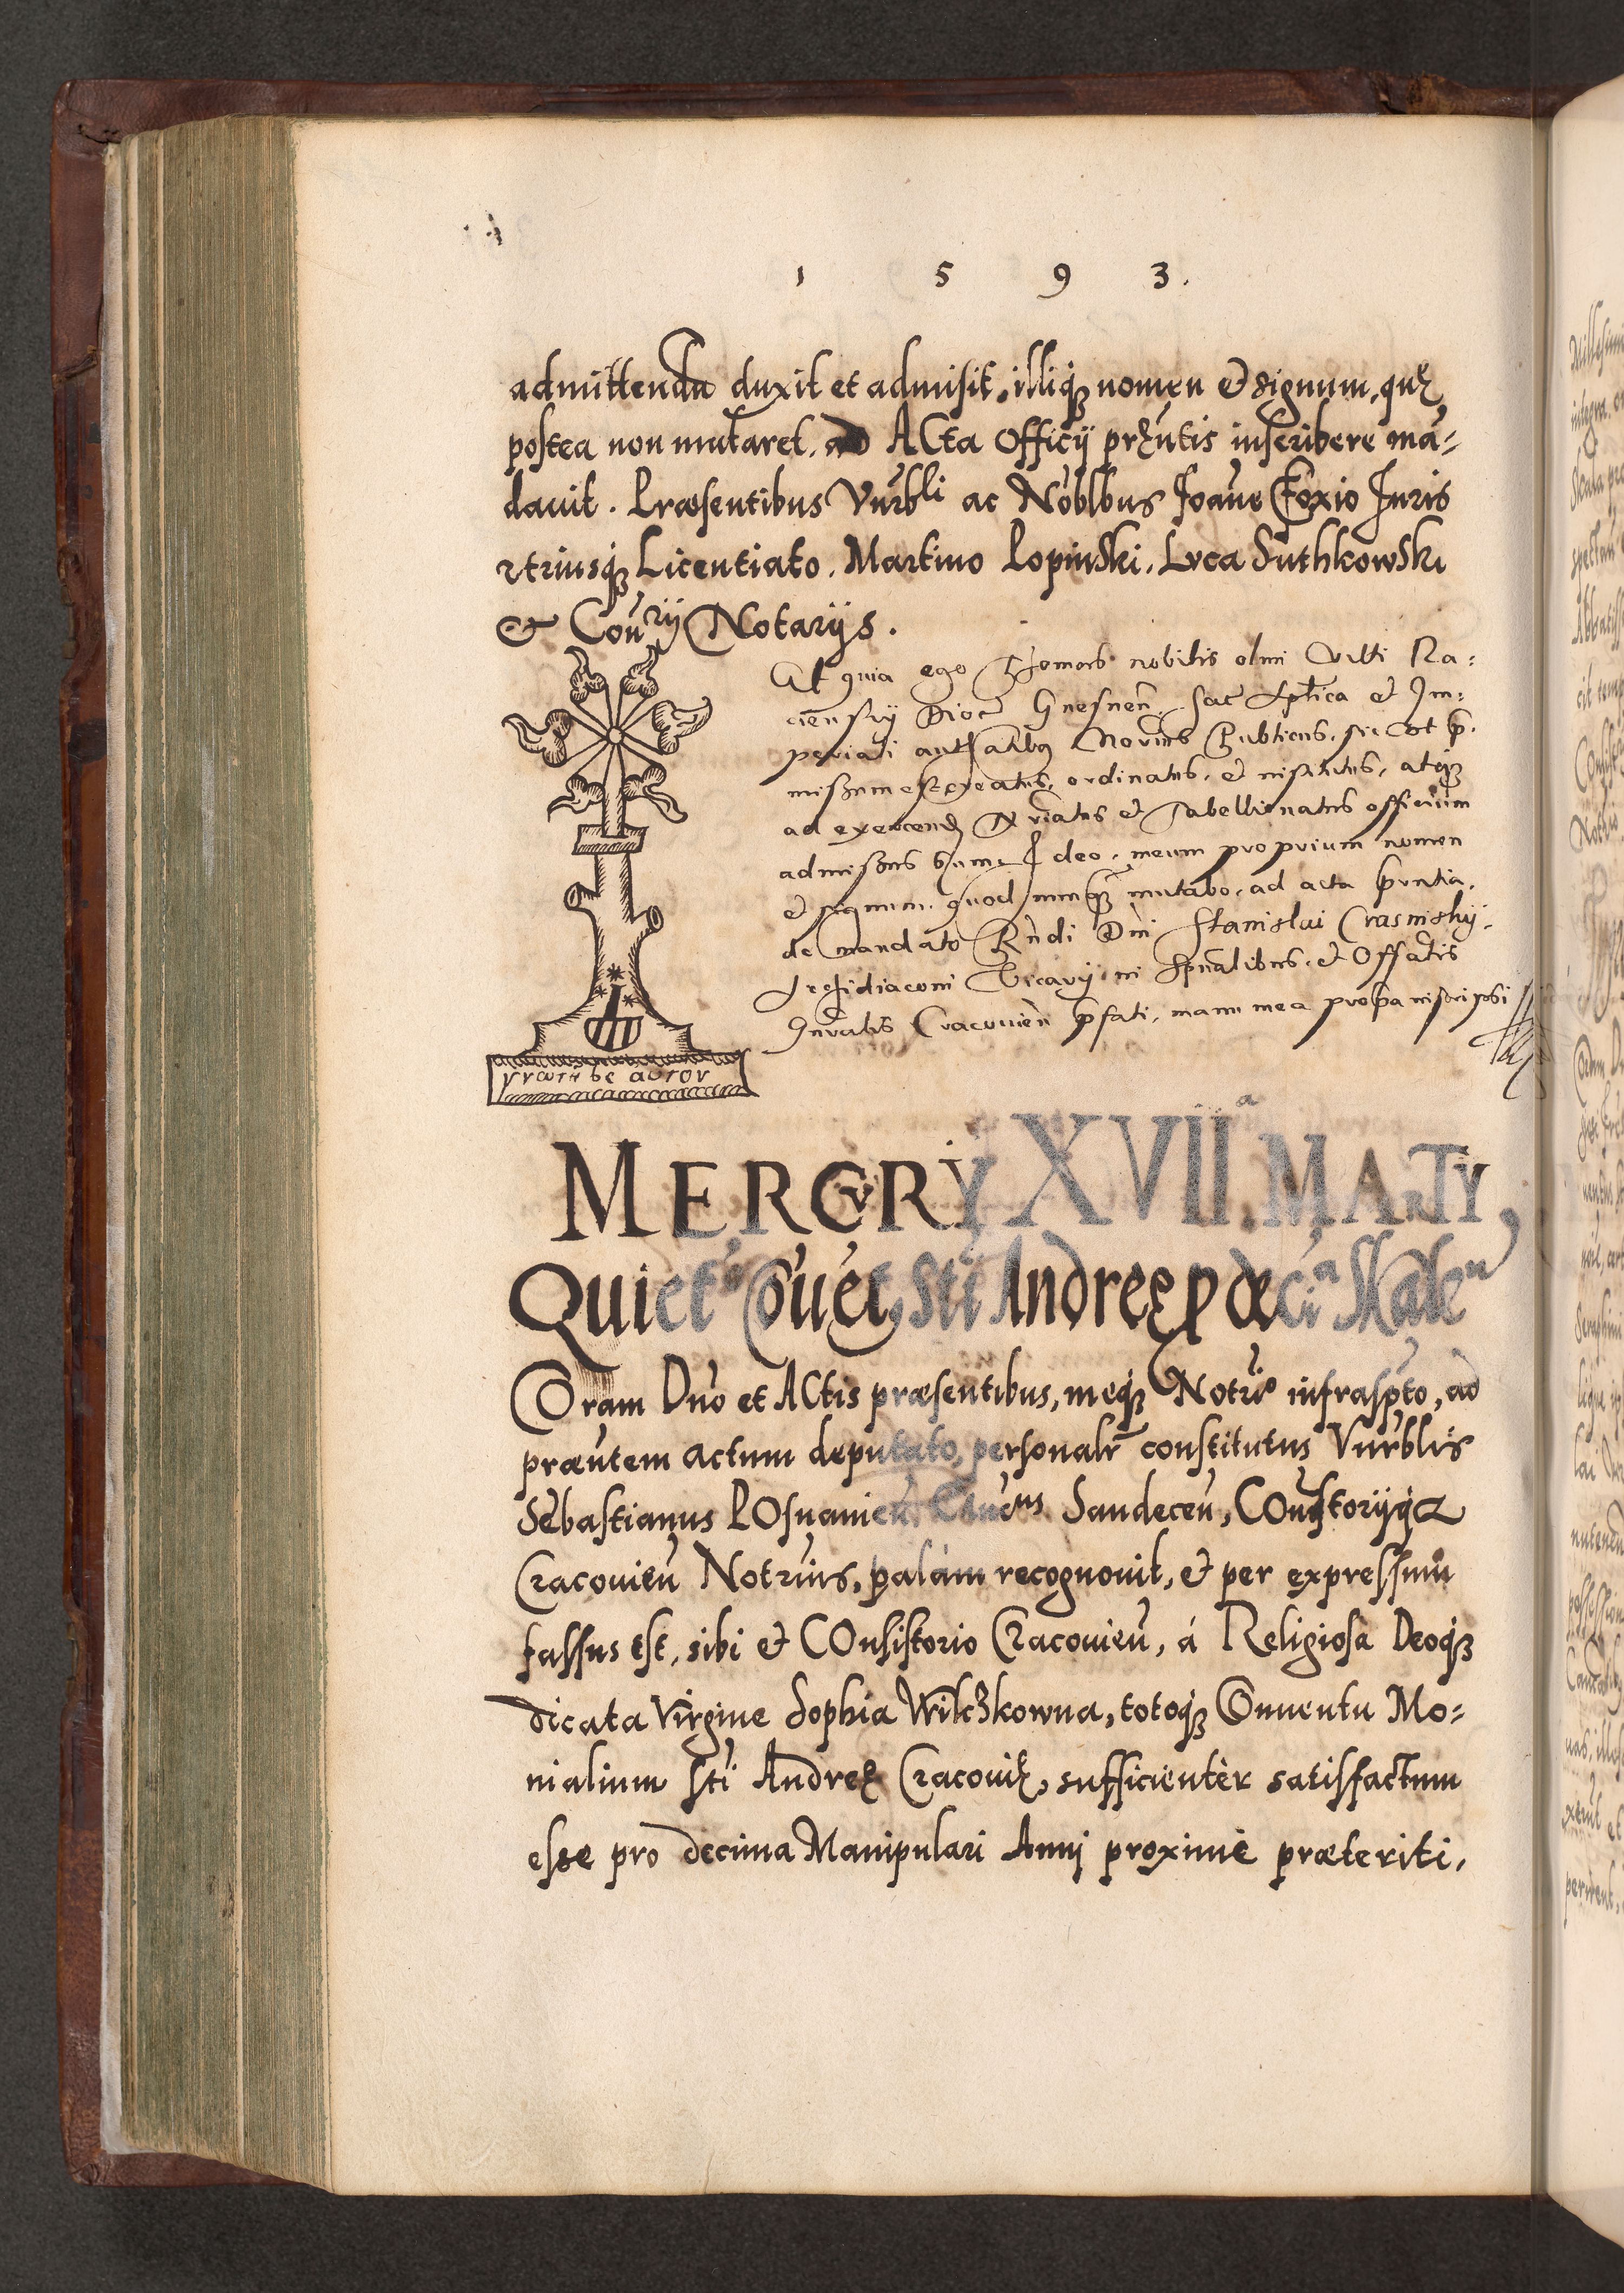 1 5 9 3.
admittendu duxit et admisit, illiqꝫ nomen et signum, quę
postea non mutaret, ad ACta Officÿ pręūtis inscribere mā=
dauit. Præsentibus Vnrbli ac Noblbus Joāne Foxio Juris
vtriusqꝫ Licentiato, Martino Lopinski, Lvca Suthkowski
et Conrÿ Notarÿs.
Et quia ego Thomas nobilis olmi Ra=
Dioc Gnesneñ. Sac Aplica et Im=
periali authatibq Publicus, sic est p.
creatus, ordinatus, et atqꝫ
ad exercend et Tabellionatus officium
admissus sum. Ideo, meum proprium nomen
et signum, quod nunq mutabo, ad acta pñtia,
de mandato Rndi Dni Stanislai Crasinskÿ,
Vicarÿ in Spualibus, et Offalis
Gnralis Cracouieñ pfati, manu mea propa inscripsi
γνῶθι σε αυτον
MERCVRY XVIIᵃ MARTY,
Quiet Coūet Sti Andreę p deciᵃ Skaleⁿ
Coram Dno et ACtis præsentibus, meqꝫ Notrio infraspto, ad
præntem actum deputato, personalr constitutus Vnrblis
Sebastianus POsnanieñ. Sandeceñ, COnstorÿqꝫ
Cracouieñ Notrius, palàm recognouit, et per expressum
fassus est, sibi et COnsistorio Cracouieñ, á Religiosa Deoqꝫ
dicata Virgine Sophia Wilczkowna, totoqꝫ Conuentu Mo=
nialium Sti Andreę Cracouię, sufficientèr satisfactum
esse pro decima Manipulari Anni proximè præteriti,